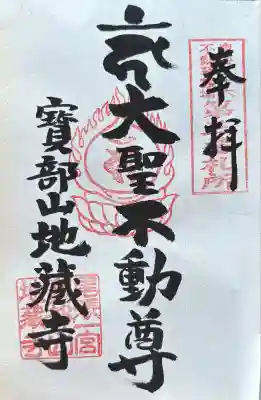 奉拝
大聖不動尊
寶部山地蔵寺